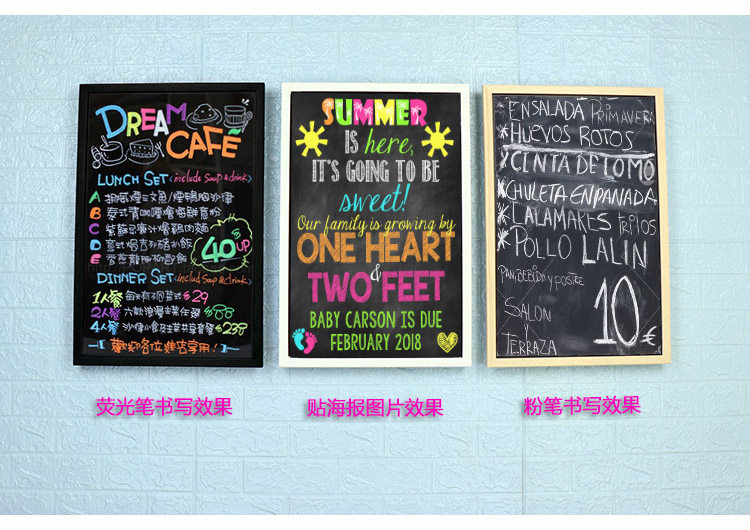 DREAM
CAFÉ
LUNCH SET (include Soup & drink)
A
B
C
D
E
40 UP
DINNER SET (includ Soup & drink)
1人餐 $29
2人餐
4人餐 $238
歡迎各位進店享用!
SUMMER
IS here,
IT'S GOING TO BE
sweet!
Our family is growing by
ONE HEART
&
TWO FEET
BABY CARSON IS DUE
FEBRUARY 2018
ENSALADA PRIMAVERA
* HUEVOS ROTOS
CINTA DE LOMO
CHULETA EMPANADA
CALAMARES FRITOS
* POLLO LALIN
PAN, BEBIDA y POSTRE
10 €
SALON
Y
TERRAZA
荧光笔书写效果
贴海报图片效果
粉笔书写效果